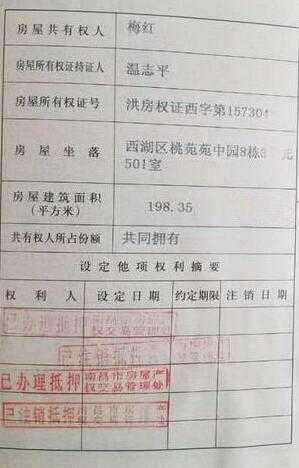 房屋共有权人 梅红
房屋所有权证持证人 温志平
房屋所有权证号 洪房权证西字第157304
房屋坐落 西湖区桃苑苑中园8栋3 元
501室
房屋建筑面积
(平方米) 198.35
共有权人所占份额 共同拥有
设定他项权利摘要
权利人 设定日期 约定期限 注销日期
已办理抵押 南昌市房屋产
权交易管理处
已注销抵押
已办理抵押 南昌市房屋产
权交易管理处
已注销抵押